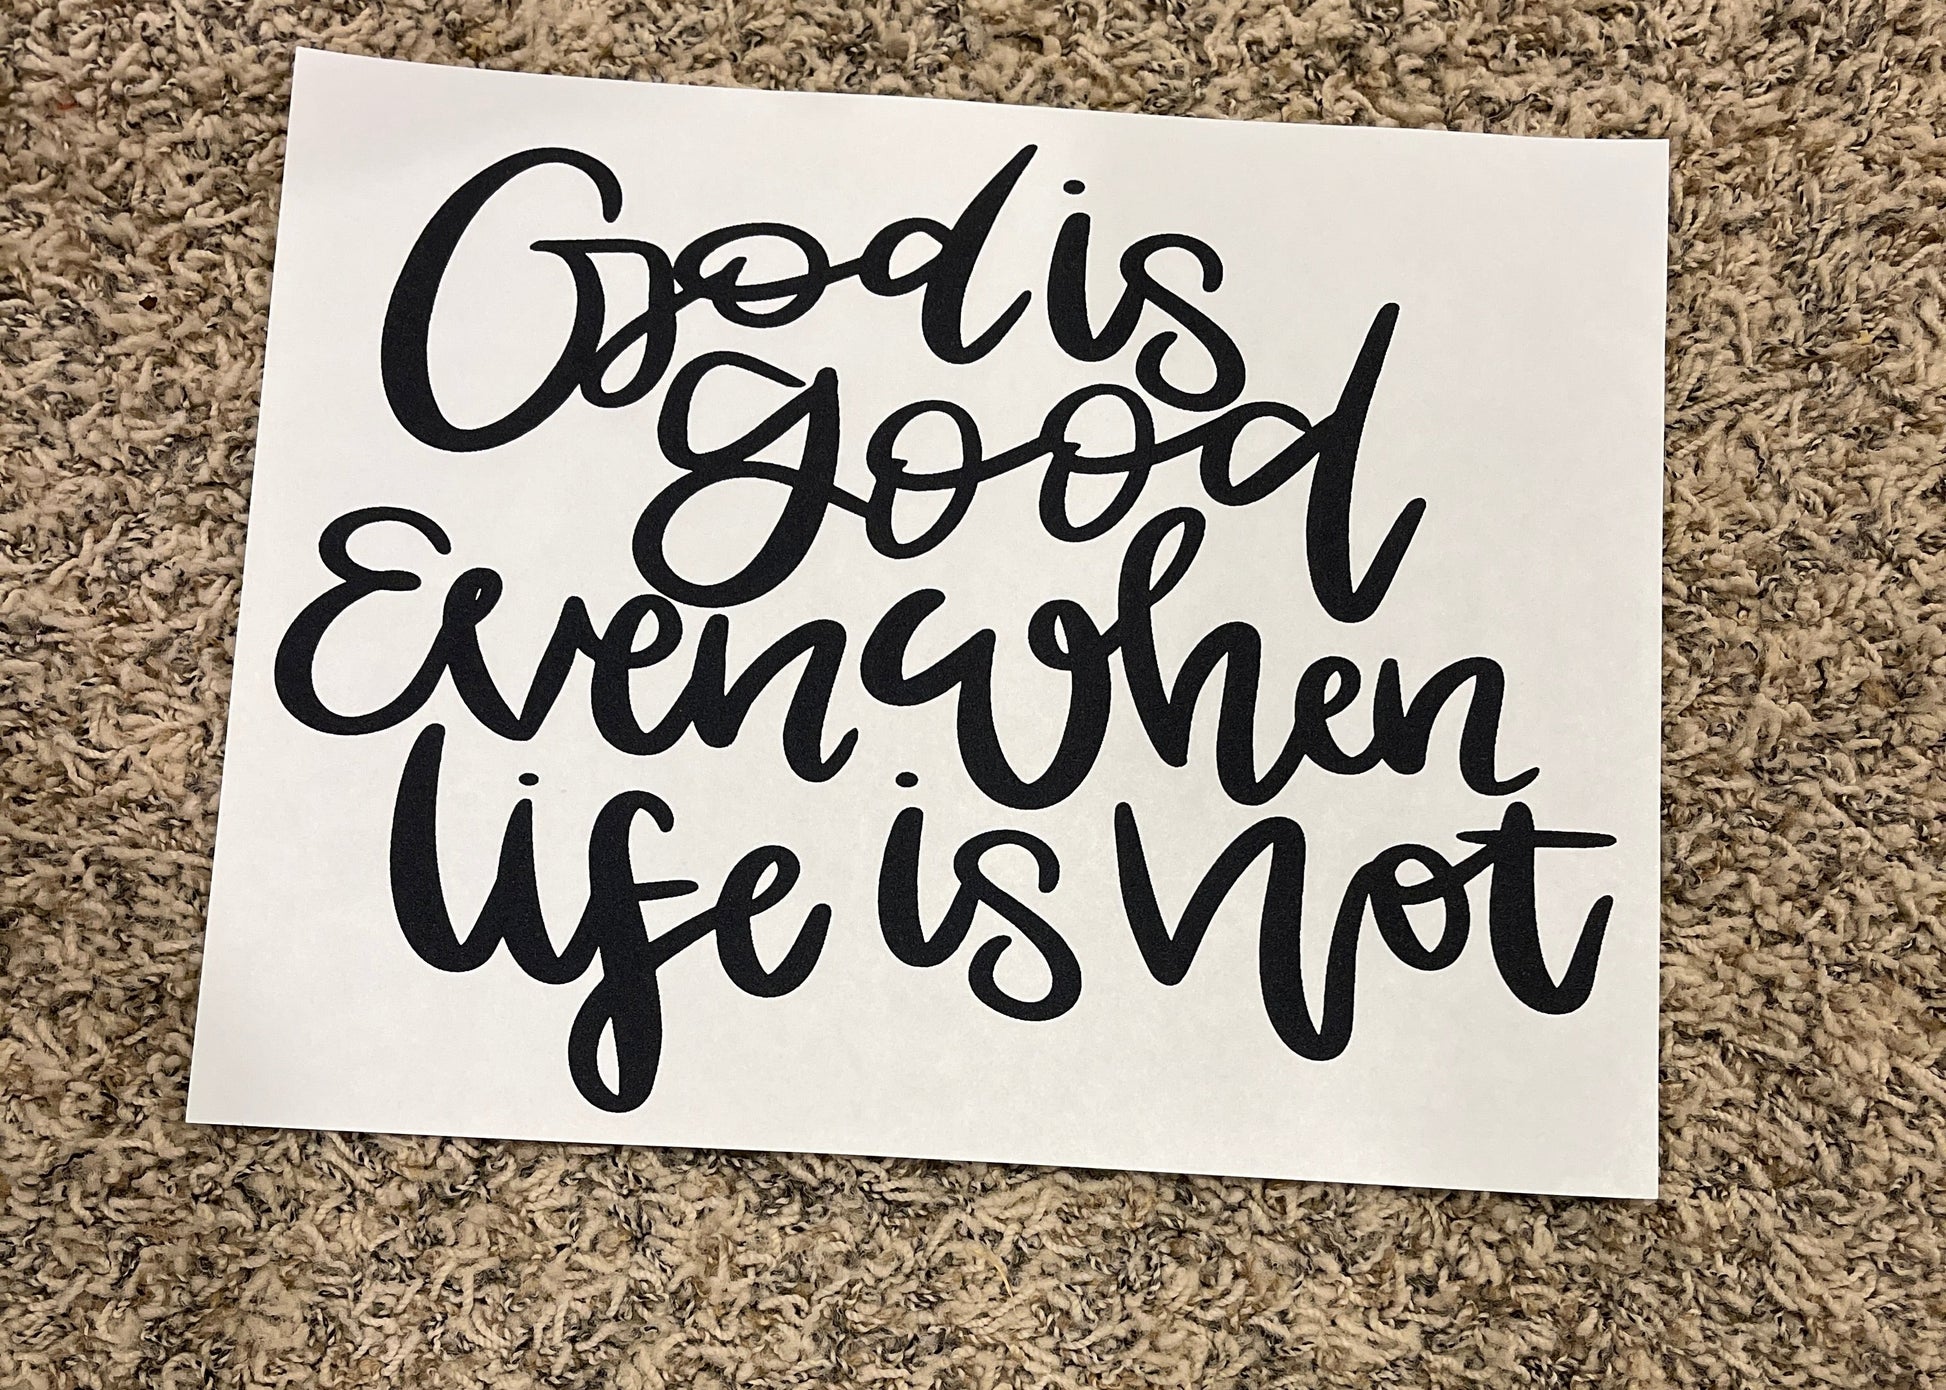 God is
good
Even when
life is not